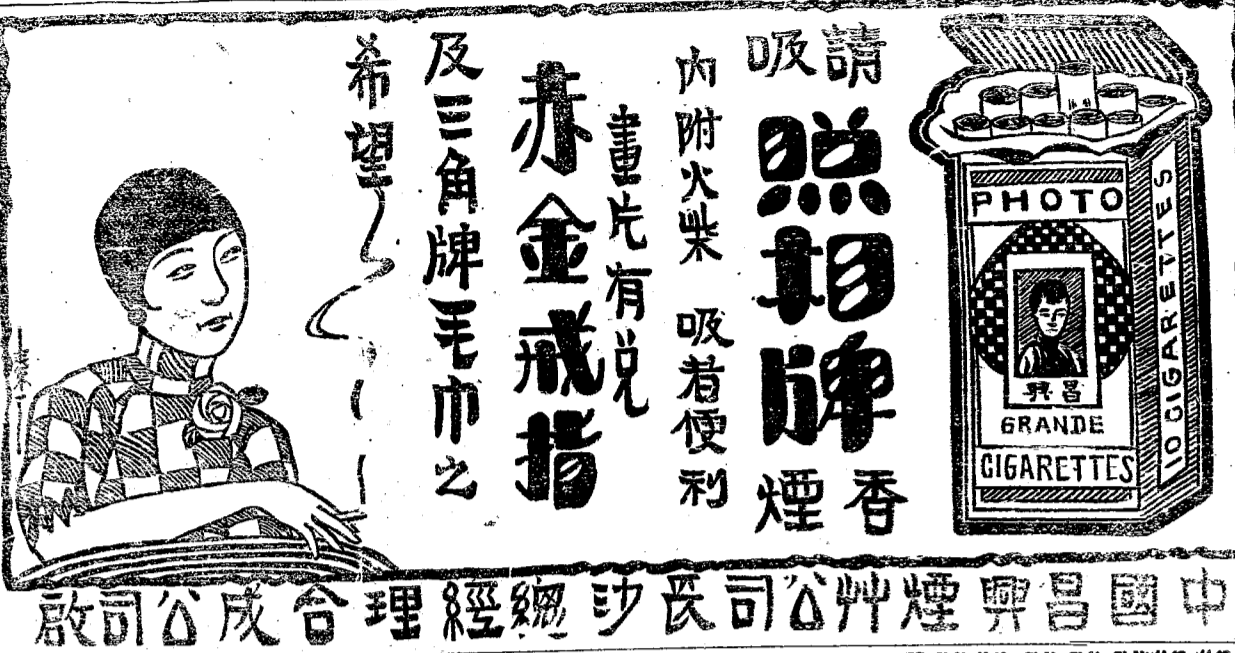 請吸
照相牌
香煙
內附火柴 吸者便利
畫片有說
赤金戒指
及三角牌毛巾之
希望
PHOTO
興昌
GRANDE
CIGARETTES
10 CIGARETTES
中國昌興煙艸公司長沙總經理合成公司啟